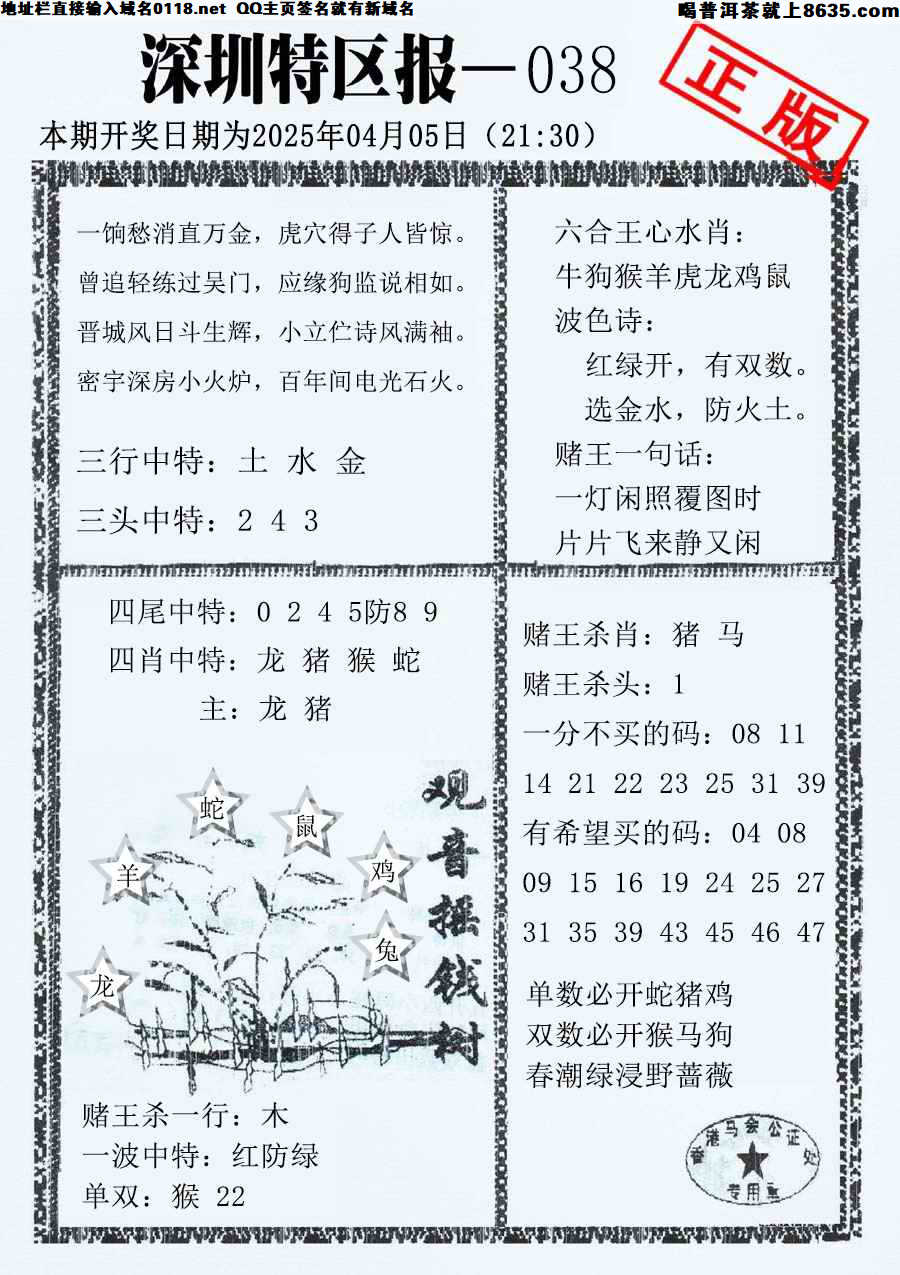 地址栏直接输入域名0118.net QQ主页签名就有新域名
喝普洱茶就上8635.com
深圳特区报—038
正版
本期开奖日期为2025年04月05日（21:30）
一饷愁消直万金，虎穴得子人皆惊。
曾追轻练过吴门，应缘狗监说相如。
晋城风日斗生辉，小立伫诗风满袖。
密宇深房小火炉，百年间电光石火。
三行中特：土 水 金
三头中特：2 4 3
六合王心水肖：
牛狗猴羊虎龙鸡鼠
波色诗：
红绿开，有双数。
选金水，防火土。
赌王一句话：
一灯闲照覆图时
片片飞来静又闲
四尾中特：0 2 4 5防8 9
四肖中特：龙 猪 猴 蛇
主：龙 猪
蛇
鼠
羊
鸡
兔
龙
观音摇钱树
赌王杀一行：木
一波中特：红防绿
单双：猴 22
赌王杀肖：猪 马
赌王杀头：1
一分不买的码：08 11
14 21 22 23 25 31 39
有希望买的码：04 08
09 15 16 19 24 25 27
31 35 39 43 45 46 47
单数必开蛇猪鸡
双数必开猴马狗
春潮绿浸野蔷薇
香港马会公证处
专用章